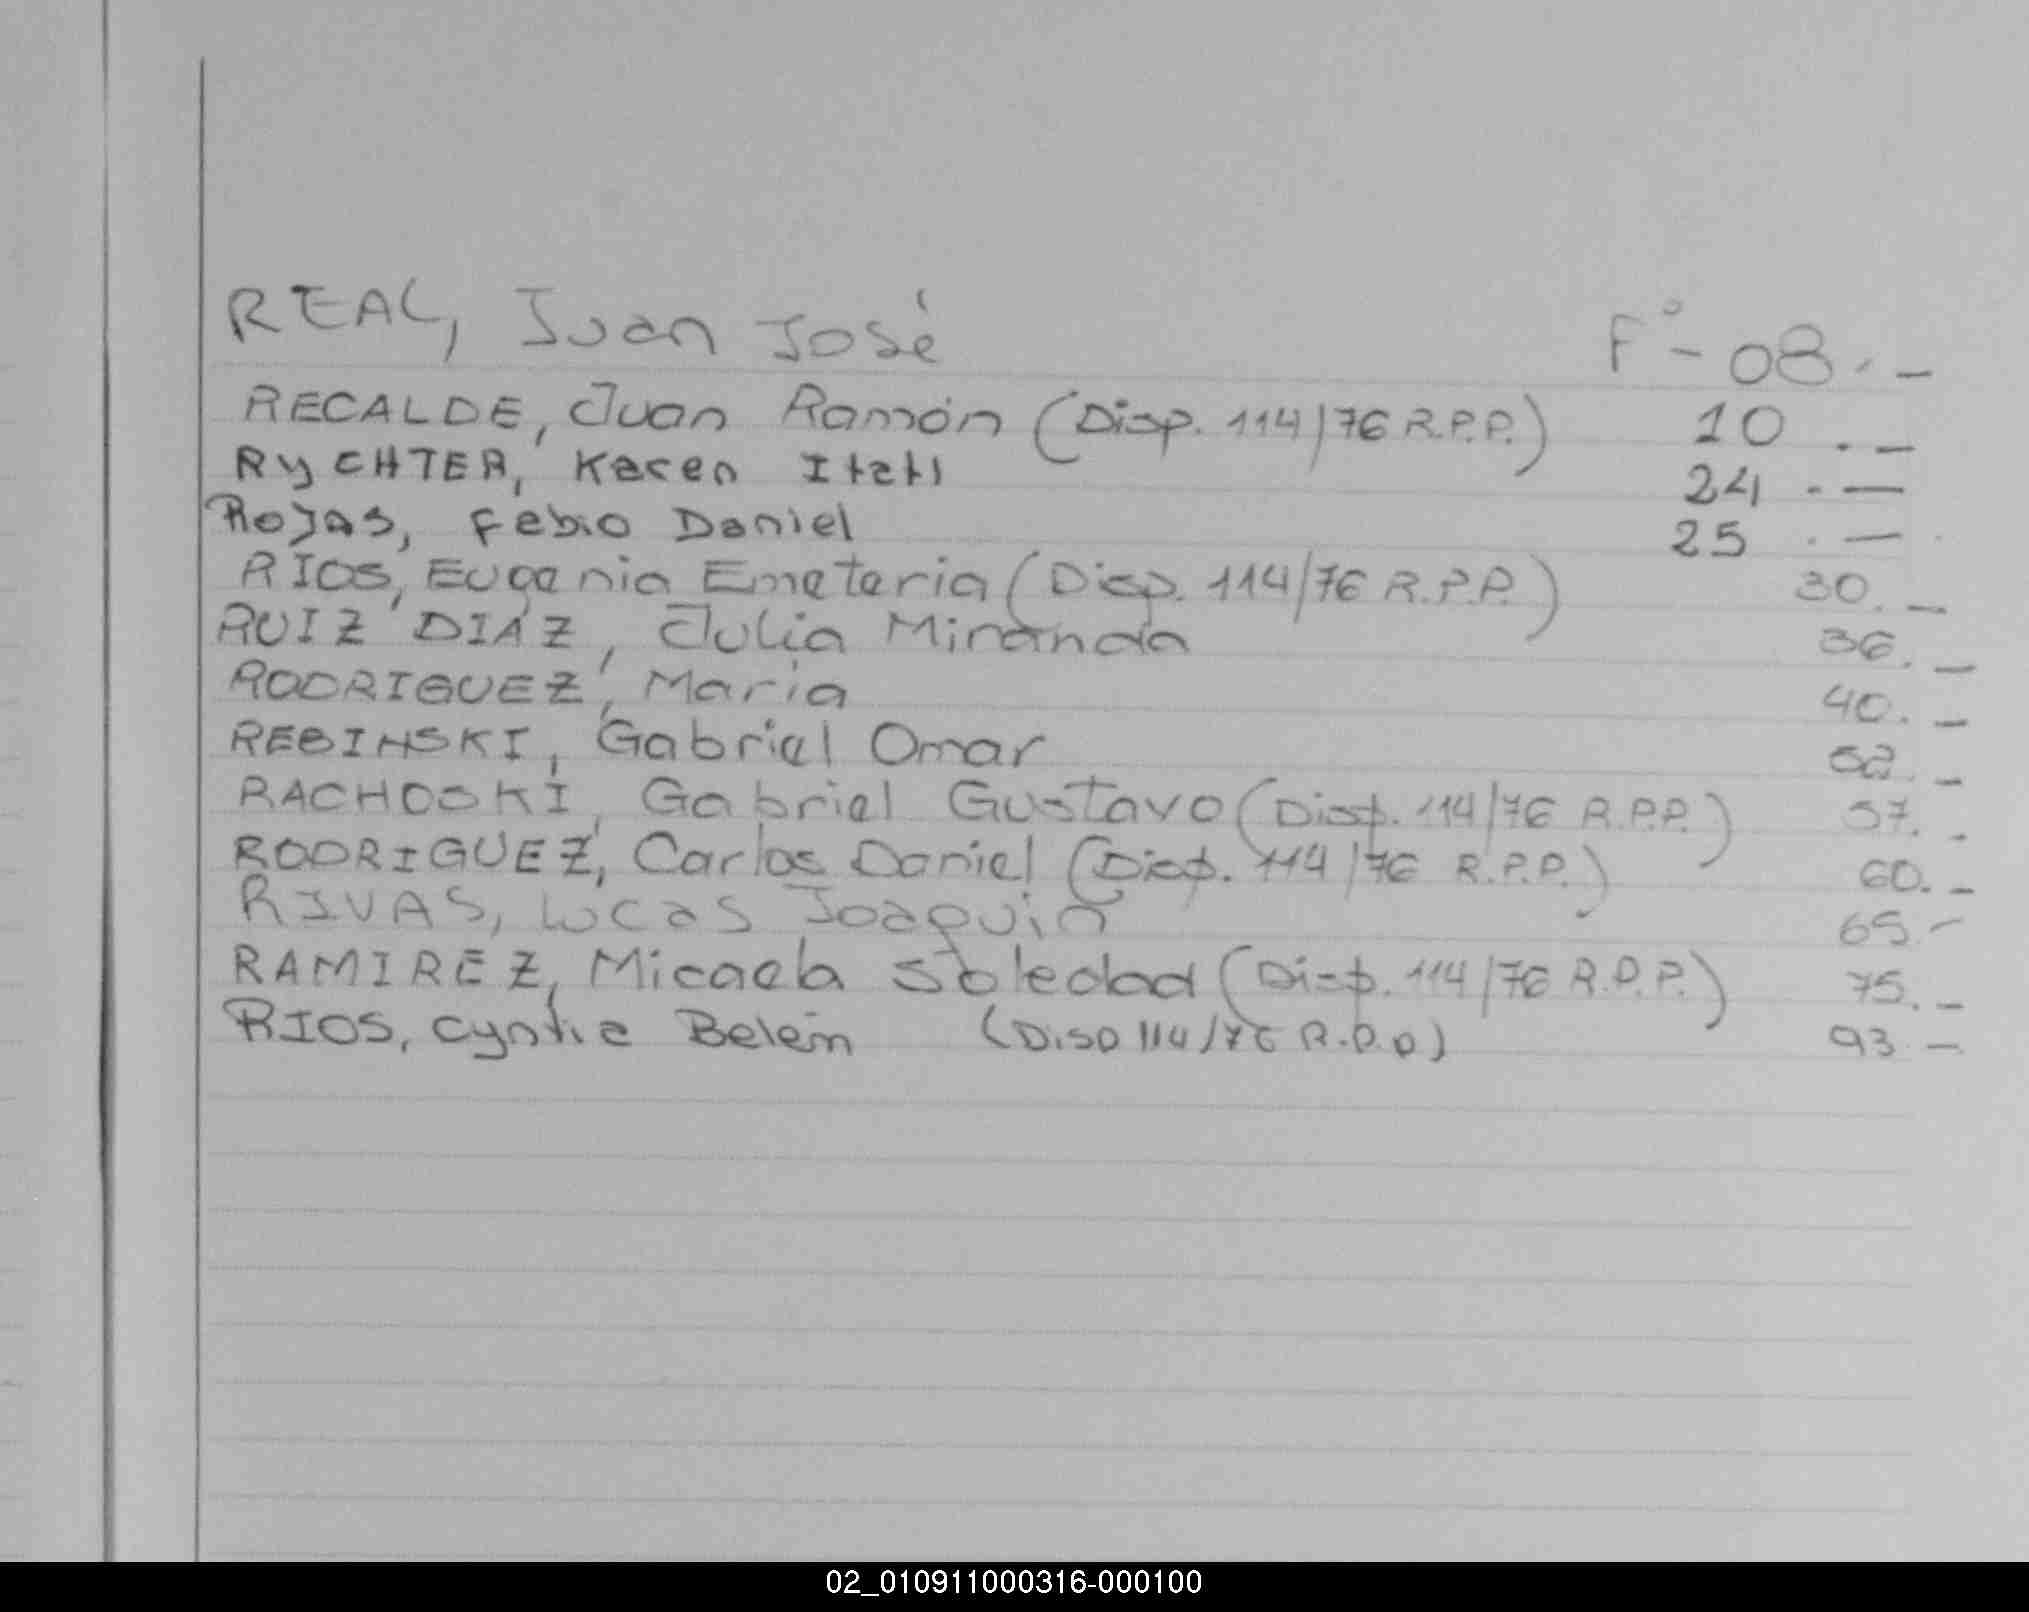 REAL, Juan José F° - 08. -
RECALDE, Juan Ramón (Disp. 114/76 R.P.P.) 10 . -
RyCHTER, Karen Itatí 24 . -
Rojas, Fabio Daniel 25 . -
RIOS, Eugenia Emeteria (Disp. 114/76 R.P.P.) 30. -
RUIZ DIAZ, Julia Miranda 36. -
RODRIGUEZ, Maria 40. -
REBINSKI, Gabriel Omar 52. -
RACHOSKI, Gabriel Gustavo (Disp. 114/76 R.P.P.) 57. -
RODRIGUEZ, Carlos Daniel (Disp. 114/76 R.P.P.) 60. -
RIVAS, Lucas Joaquin 65. -
RAMIREZ, Micaela Soledad (Disp. 114/76 R.P.P.) 75. -
RIOS, Cyntia Belén (Disp 114/76 R.P.P) 93 -
02_010911000316-000100